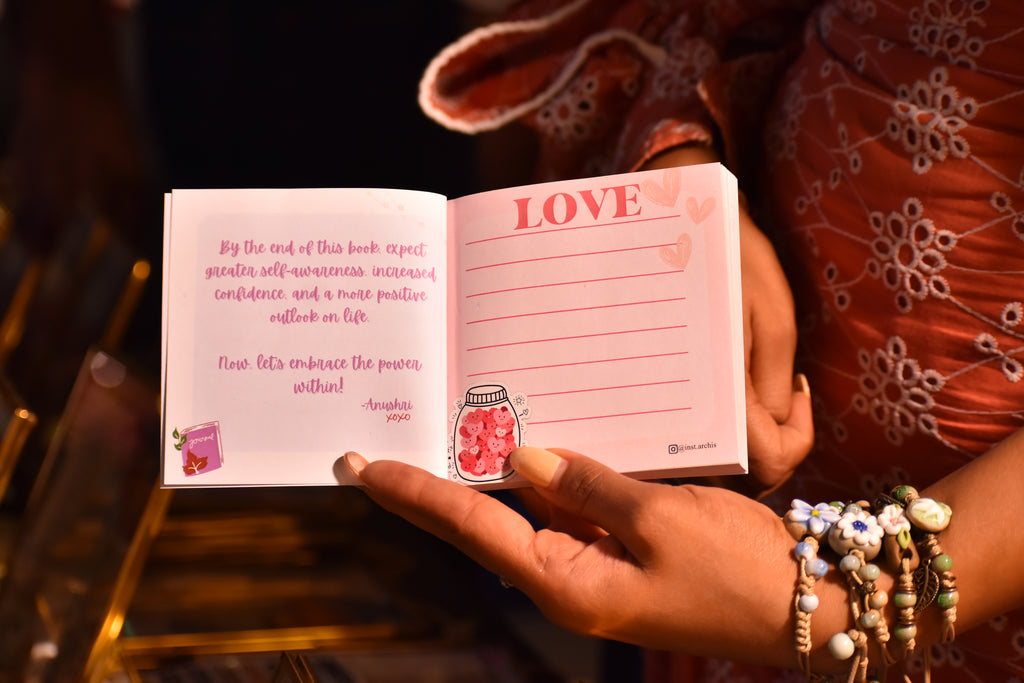 By the end of this book, expect
greater self-awareness, increased
confidence, and a more positive
outlook on life.
Now, let's embrace the power
within!
-Anushri
xoxo
journal
LOVE
@inst.archis